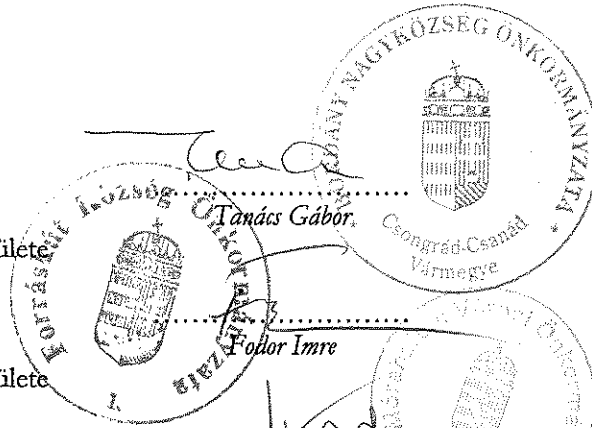 NAGYKÖZSÉG ÖNKORMÁNYZATA
Csongrád-Csanád
Vármegye
Tanács Gábor
Forráskút Község Önkormányzata
I.
ülete
Fodor Imre
ülete